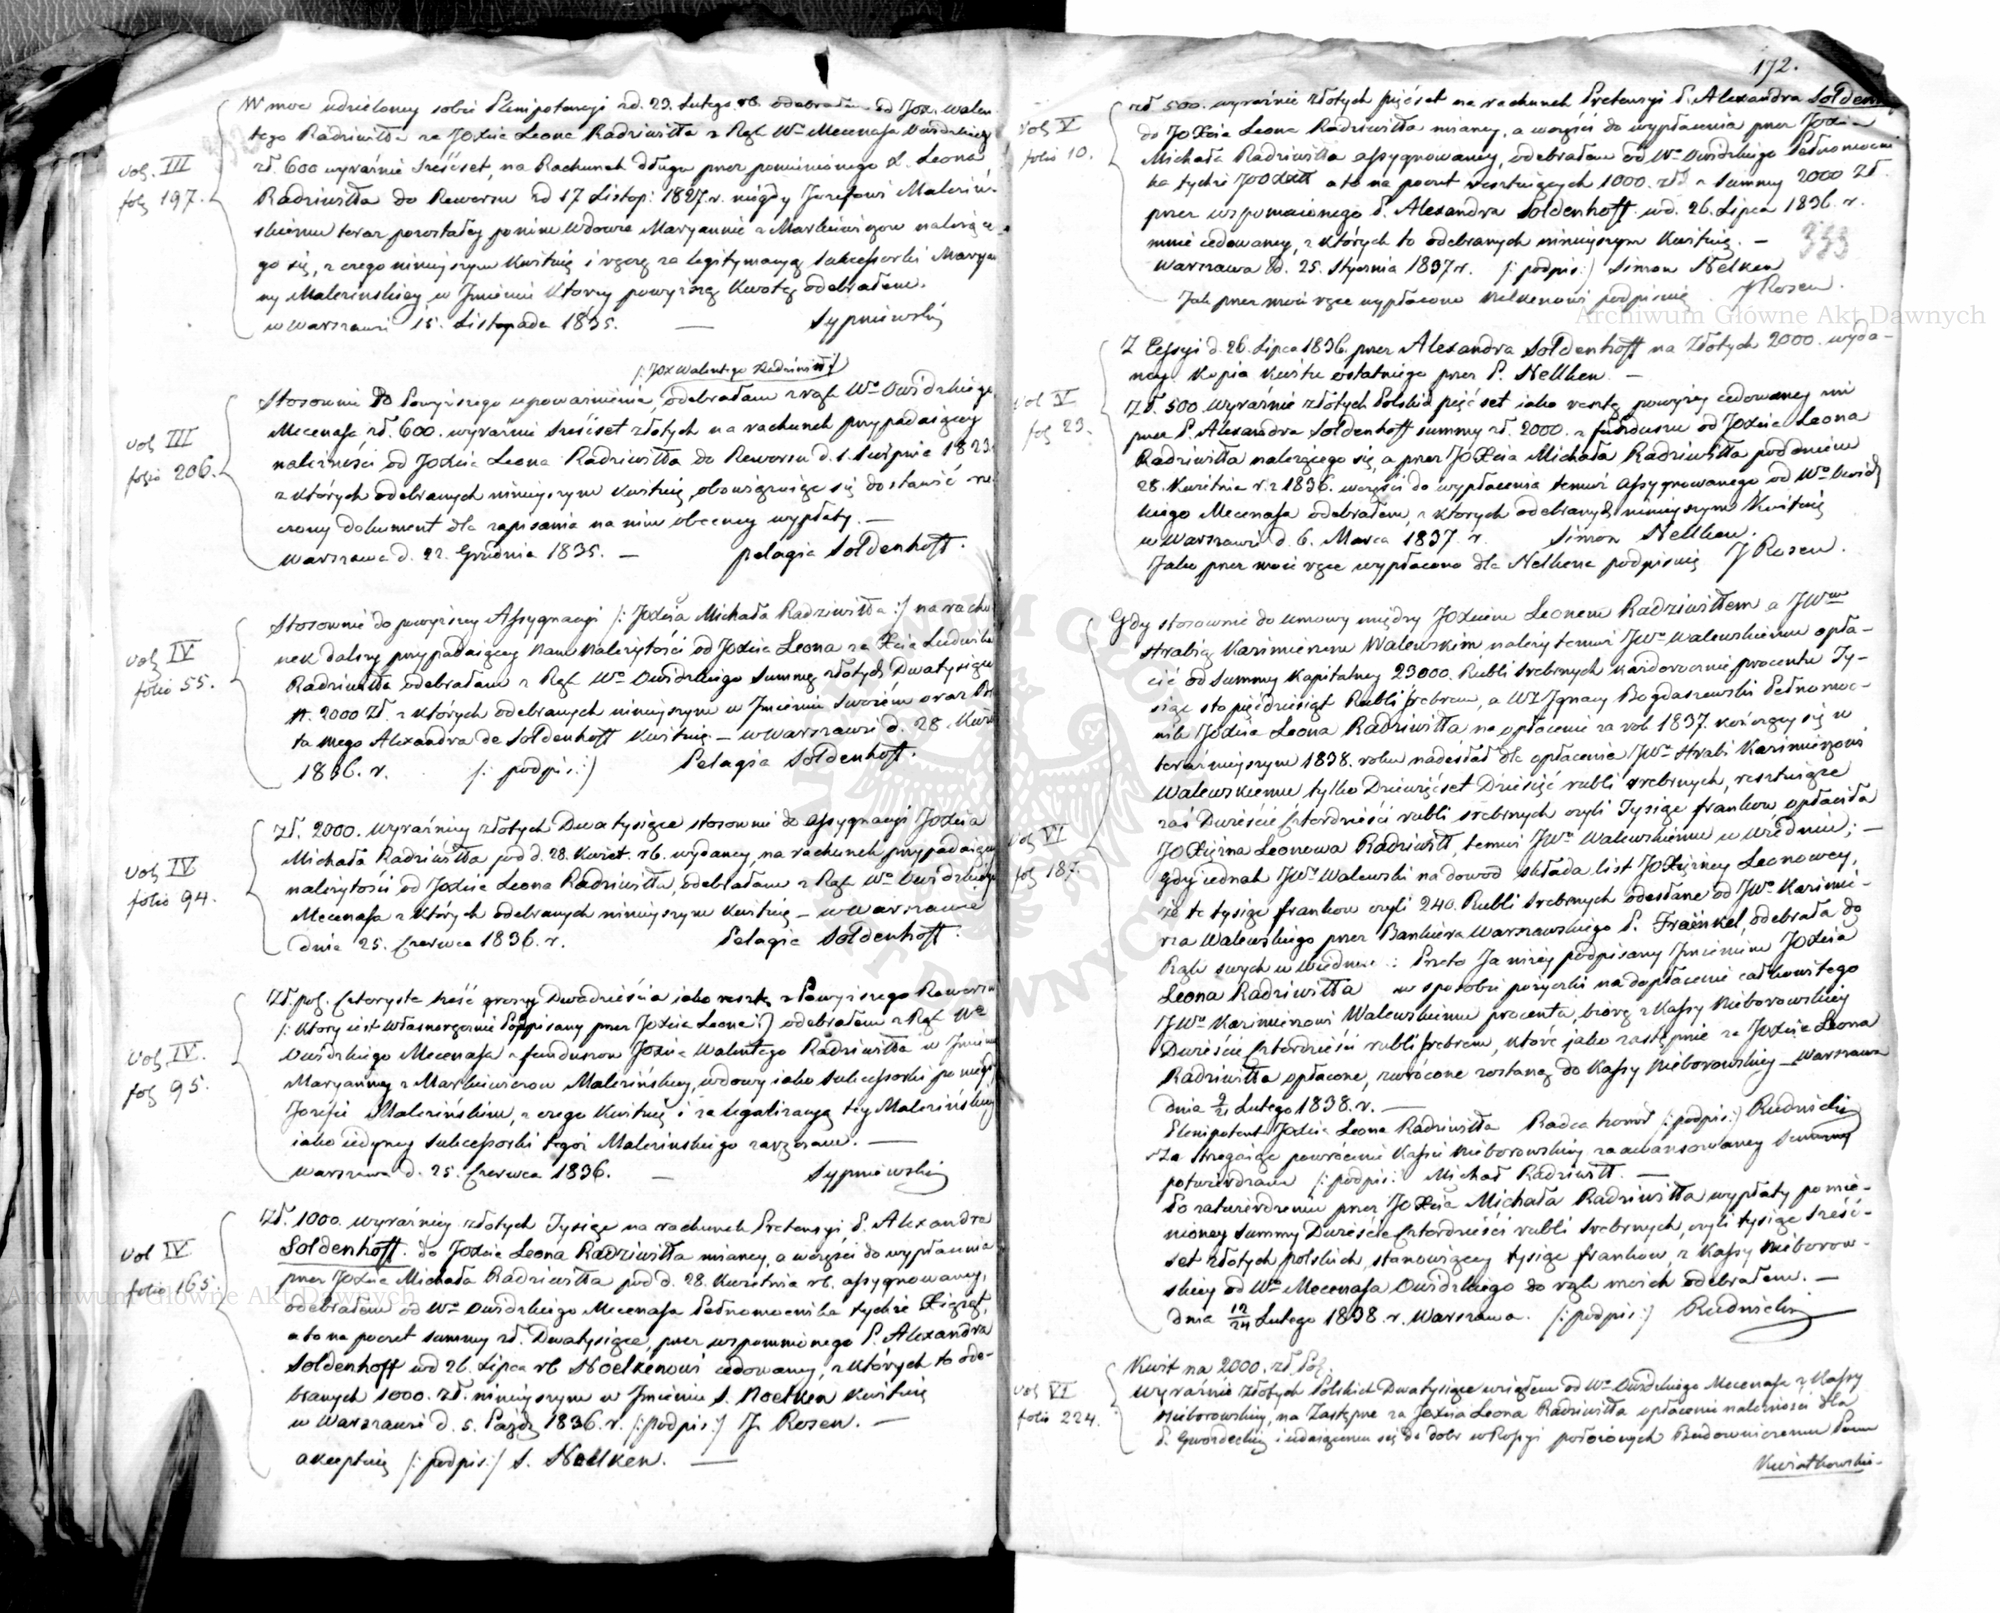 W moc udzieloney sobie Plenipotencyi z d. 23. Lutego rb. odebrałem od Jox. Walen-
tego Radziwiłła za JOXcia Leona Radziwiłła z Rąk Wo Mecenasa Owidzkiego
zł. 600 wyraźnie Sześćset, na Rachunek długu przez pomienionego X. Leona
Radziwiłła do Rewersu z d 17 Listop: 1827. r. niegdy Jozefowi Maleziń-
skiemu teraz pozostałey po nim Wdowie Maryannie z Markiewiczow należące-
go się, z czego ninieyszym kwituię i ręczę za legitymacyą Sukcessorki Marya-
ny Malezinskiey w Jmieniu ktorey powyższą kwotę odebrałem.
w Warszawie 15. Listopada 1835. — Sypniewski
vol. III
fol. 197.
/: JOX Walentego Radziwiłł :/
Stosownie do Powyższego upoważnienia, odebrałam z rąk Wo Owidzkiego
Mecenasa zł. 600. wyraźnie Sześćset złotych na rachunek przypadaiącey
należności od JOXcia Leona Radziwiłła do Rewersu d. 1. Sierpnia 1823.
z których odebranych ninieyszym kwituię, obowiązuiąc się dostawić rze-
czony dokument dla zapisania na nim obecney wypłaty. —
Warszawa d. 22. Grudnia 1835. — Pelagia Sołdenhoff.
vol III
folio 206.
Stosownie do powyższey Assygnacyi /: JOXcia Michała Radziwiłła :/ na rachu-
nek dalszy przypadaiącey nam należytości od JOXcia Leona za Xcia Ludwika
Radziwiłła odebrałam z Rąk Wo Owidzkiego Summę złotych Dwatysiące
# 2000 Zł. z których odebranych ninieyszym w Jmieniu Swoiém oraz Bra-
ta mego Alexandra de Sołdenhoff kwituię. — w Warszawie d. 28. Kwie
1836. r. /: podpis. :/ Pelagia Sołdenhoff.
vol IV
folio 55.
Zł. 2000. wyraźniey złotych Dwa tysiące stosownie do Assygnacyi JOXcia
Michała Radziwiłła pod d. 28. Kwiet. rb. wydaney, na rachunek przypadaiącey
należytości od JOXcia Leona Radziwiłła, odebrałam z Rąk Wo Owidzkiego
Mecenasa z których odebranych ninieyszym kwituię — w Warszawie
dnia 25. Czerwca 1836. r. Pelagia Sołdenhoff.
vol IV
folio 94.
Zł. pol. Czterysta sześć groszy Dwadzieścia iako resztę z Powyższego Rewersu
/: który iest własnoręcznie Podpisany przez JOXcia Leona :/ odebrałem z Rąk Wo
Owidzkiego Mecenasa z funduszow JOXcia Walentego Radziwiłła w Jmieniu
Maryanny z Markiewiczow Malezińskiey, wdowy iako Sukcessorki po niegdy
Jozefie Malezińskim, z czego kwituię i za legalizacyą tey Malezińskiey
iako iedyney Sukcessorki tegoż Malezinskiego zaręczam. —
Warszawa d. 25. Czerwca 1836. — Sypniewski
vol. IV.
fol. 95.
Zł. 1000. wyraźniey złotych Tysiąc na rachunek Pretensyi, P. Alexandra
Soldenhoff. do JOXcia Leona Radziwiłła mianey, a w części do wypłacenia
przez JOXcia Michała Radziwiłła pod d. 28. Kwietnia rb. assygnowaney,
odebrałem od Wo Owidzkiego Mecenasa Pełnomocnika tychże Xiążąt,
a to na poczet summy zł. Dwatysiące, przez wspomnionego P. Alexandra
Soldenhoff w d. 26. Lipca rb Noelkenowi cedowaney, z których to ode-
branych 1000. zł. ninieyszym w Jmieniu S. Noelken kwituię
w Warszawie d. 5. Paźdz 1836. r. /: podpis :/ J. Rosen. —
akceptuię /: podpis :/ S. Nellken. —
vol IV
folio 165.
172.
zł 500. wyraźnie złotych pięćset na rachunek Pretensyi P. Alexandra Sołden
do JOXcia Leona Radziwiłła mianey, a w części do wypłacenia przez JOXcia
Michała Radziwiłła assygnowaney, odebrałem od Wo Owidzkiego Pełnomocni-
ka tychże JOOXX a to na poczet resztuiących 1000. zł z Summy 2000 Zł.
przez wspomnionego P. Alexandra Soldenhoff w d. 26. Lipca 1836. r.
mnie cedowaney, z których to odebranych ninieyszym kwituię. —
Warszawa d. 25. Stycznia 1837 r. /: podpis :/ Simon Nelken
Jak przez moie ręce wypłacono Nelkenowi podpisuię J Rosen.
333
vol V
folio 10.
Z Cessyi d. 26. Lipca 1836. przez Alexandra Sołdenhoff na Złotych 2000. wyda-
ney. Kopia Kwitu ostatniego przez P. Nellken. —
Zł. 500 wyraźnie złotych Polskich pięćset iako resztę powyżey cedowaney mi
przez P. Alexandra Soldenhoff summy zł. 2000. z funduszu od JOXcia Leona
Radziwiłła należącego się, a przez JOXcia Michała Radziwiłła pod dniem
28. Kwietnia r. z 1836. w części do wypłacenia temuż assygnowanego od Wo Owidz
kiego Mecenasa odebrałem, z których odebranych ninieyszym Kwituię
w Warszawie d. 6. Marca 1837. r. Simon Nellken.
Jako przez moie ręce wypłacono dla Nellkena podpisuię J Rosen.
vol V
fol 23.
Gdy stosownie do umowy między JOXciem Leonem Radziwiłłem a JWm
Hrabią Kazimierzem Walewskim należy temuż JWo Walewskiemu opła-
cić od Summy Kapitalney 23000. Rubli srebrnych każdorocznie procentu Ty-
siąc sto pięćdziesiąt Rubli srebrem, a WJ Ignacy Bogdaszewski Pełnomoc-
nik JOXcia Leona Radziwiłła na opłacenie za rok 1837. kończący się w
teraźnieyszym 1838. roku nadesłał dla opłacenia JWo Hrabi Kazimierzowi
Walewskiemu tylko Dziewięćset Dziesięć rubli srebrnych, resztuiące
zaś Dwieście Czterdzieści rubli srebrnych czyli Tysiąc franków, opłaciła
JOXiężna Leonowa Radziwiłł, temuż JWo Walewskiemu w Wiedniu; —
gdy iednak JWy Walewski na dowod składa list JOXiężney Leonowey,
że te tysiąc frankow czyli 240. Rubli srebrnych odesłane od JWo Kazimie-
rza Walewskiego przez Bankiera Warszawskiego P. Fraënkel, odebrała do
Rąk swych w Wiedniu: Przeto Ja niżey podpisany Jmieniem JOXcia
Leona Radziwiłła w sposobie pożyczki na dopłacenie całkowitego
JWo Kazimierzowi Walewskiemu procentu, biorę z Kassy Nieborowskiey
Dwieście Czterdzieści rubli srebrem, które jako zastępnie za JOXcia Leona
Radziwiłła opłacone, zwrócone zostaną do Kassy Nieborowskiey — Warszawa
dnia 9/21 Lutego 1838. r. —
Plenipotent JOXcia Leona Radziwiłła Radca honor /: podpis :/ Rudnicki
Zastrzegaiąc powrocenie Kassie Nieborowskiey zaawansowaney Summy
potwierdzam /: podpis: Michał Radziwiłł. —
Po zatwierdzeniu przez JOXcia Michała Radziwiłła wypłaty pomie-
nioney Summy Dwieście Czterdzieści rubli srebrnych, czyli tysiąc sześć-
set złotych polskich, stanowiącey tysiąc franków, z Kassy Nieborow-
skiey od Wo Mecenasa Owidzkiego do rąk moich odebrałem. —
dnia 12/24 Lutego 1838. r. Warszawa. /: podpis :/ Rudnicki
vol VI
fol 187.
Kwit na 2000. zł. Pol.
wyraźnie złotych Polskich Dwatysiące wziąłem od Wo Owidzkiego Mecenasa z Kassy
Nieborowskiey, na Zastępne za JOXcia Leona Radziwiłła opłacenie należności dla
P. Gwozdeckiey i udaiącemu się do dobr w Rossyi położonych Budowniczemu Panu
Kwiatkowskie-
vol VI
folio 224.
Archiwum Główne Akt Dawnych
Archiwum Główne Akt Dawnych